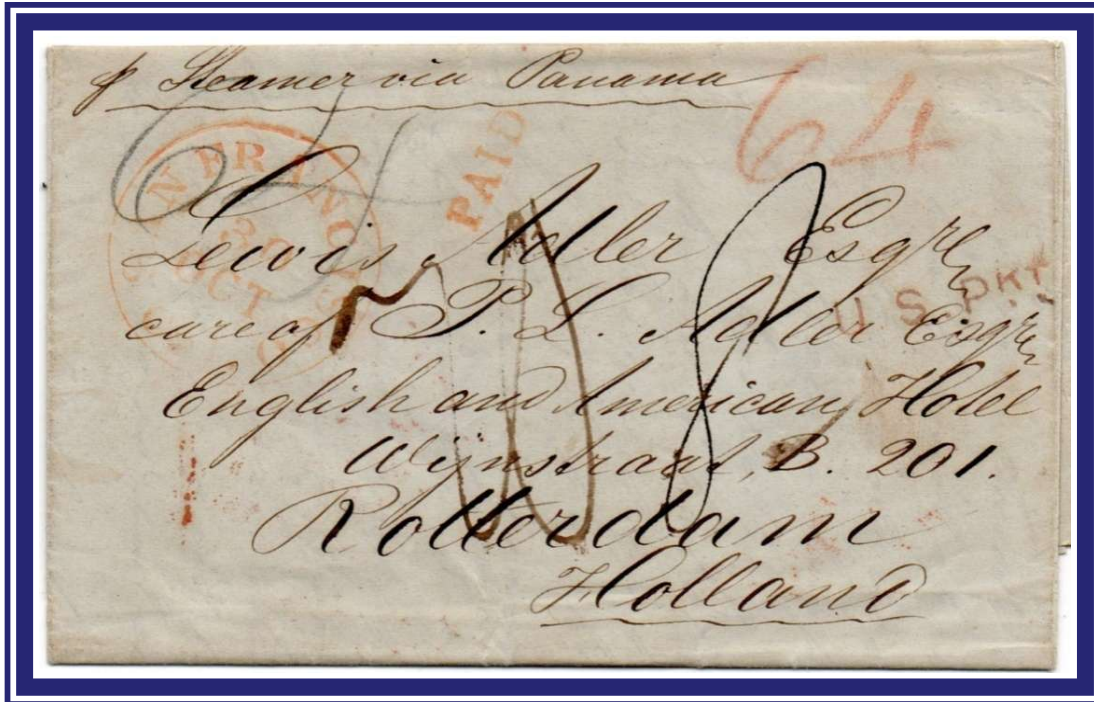 p Steamer via Panama
64
64
PAID
SAN FRANCISCO
30
OCT
Lewis Adler Esqre
U.S. PKT
care of P. L. Adler Esqre
8
English and American Hotel
Wijnstraat, B. 201.
Rotterdam
Holland